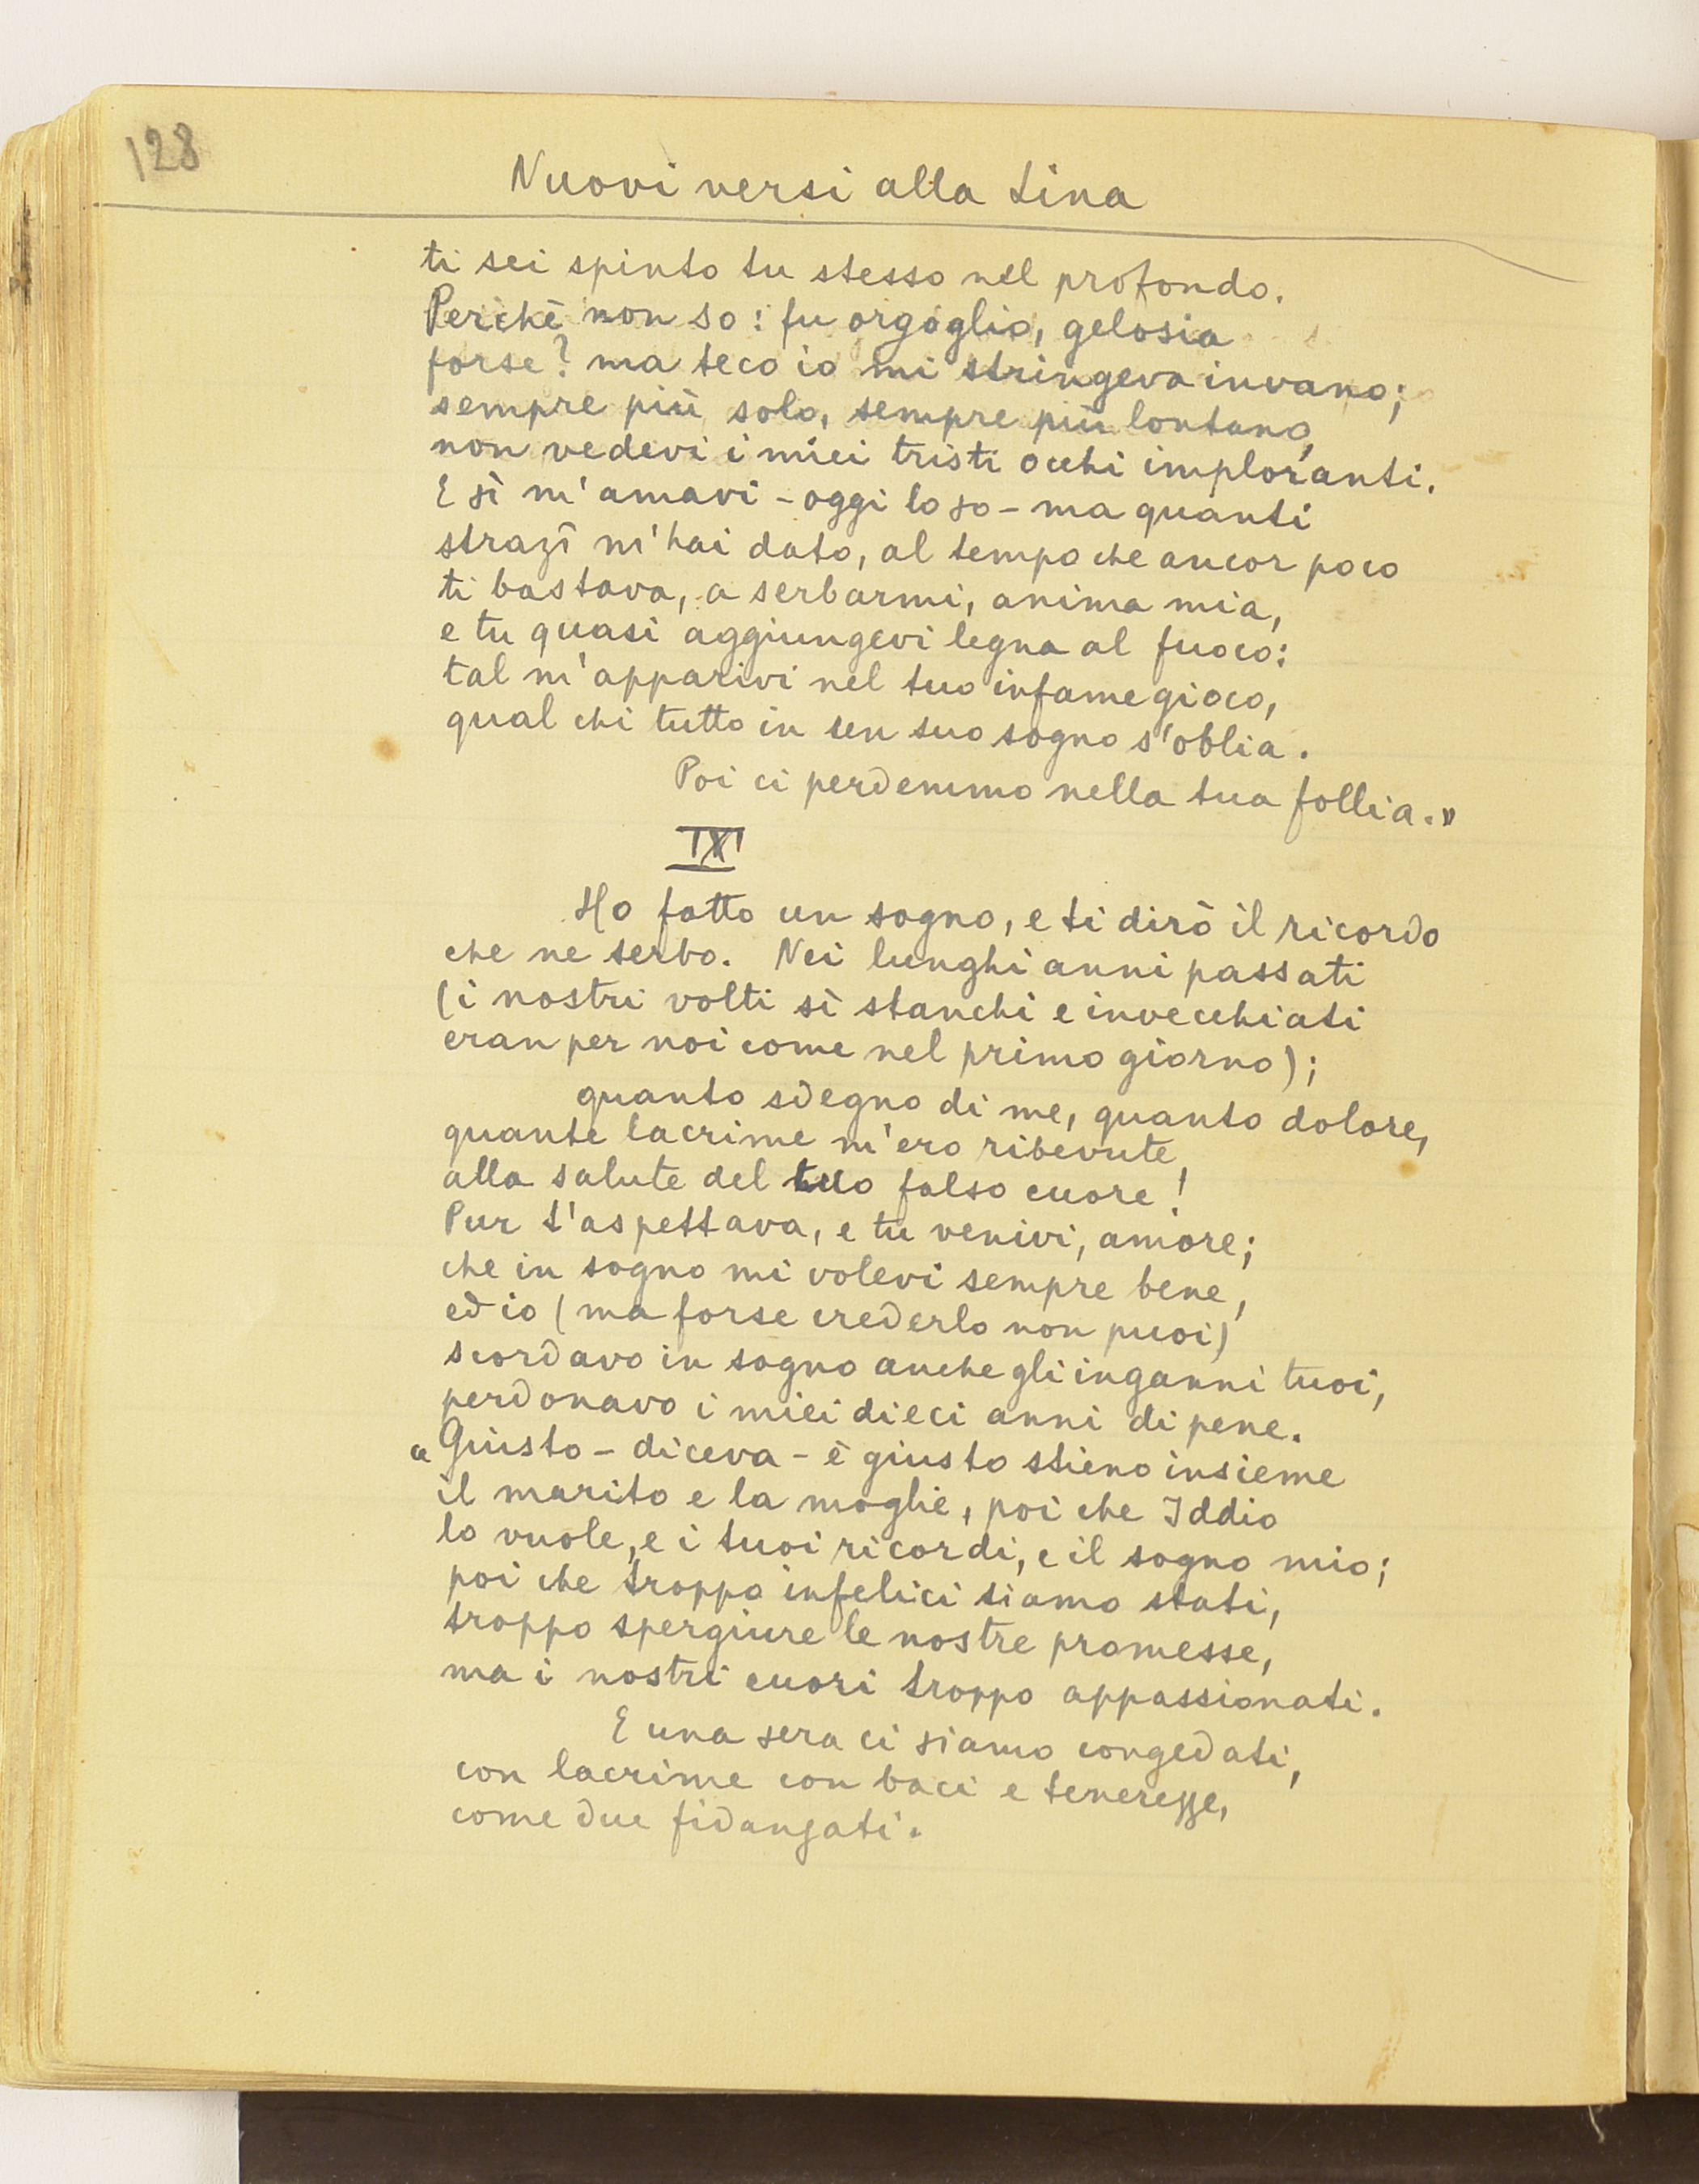 128
Nuovi versi alla Lina
ti sei spinto tu stesso nel profondo.
Perchè non so: fu orgoglio, gelosia
forse? ma teco io mi stringeva invano;
sempre più solo, sempre più lontano,
non vedevi i miei tristi occhi imploranti.
E sì m'amavi - oggi lo so - ma quanti
strazî m'hai dato, al tempo che ancor poco
ti bastava, a serbarmi, anima mia,
e tu quasi aggiungevi legna al fuoco:
tal m'apparivi nel tuo infame gioco,
qual chi tutto in un suo sogno s'oblia.
Poi ci perdemmo nella tua follia.»
IX
Ho fatto un sogno, e ti dirò il ricordo
che ne serbo. Nei lunghi anni passati
(i nostri volti sì stanchi e invecchiati
eran per noi come nel primo giorno);
quanto sdegno di me, quanto dolore,
quante lacrime m'ero ribevute,
alla salute del tuo falso cuore!
Pur t'aspettava, e tu venivi, amore;
che in sogno mi volevi sempre bene,
ed io (ma forse crederlo non puoi)
scordavo in sogno anche gli inganni tuoi,
perdonavo i miei dieci anni di pene.
«Giusto - diceva - è giusto stieno insieme
il marito e la moglie, poi che Iddio
lo vuole, e i tuoi ricordi, e il sogno mio;
poi che troppo infelici siamo stati,
troppo spergiure le nostre promesse,
ma i nostri cuori troppo appassionati.
E una sera ci siamo congedati,
con lacrime con baci e tenerezze,
come due fidanzati.